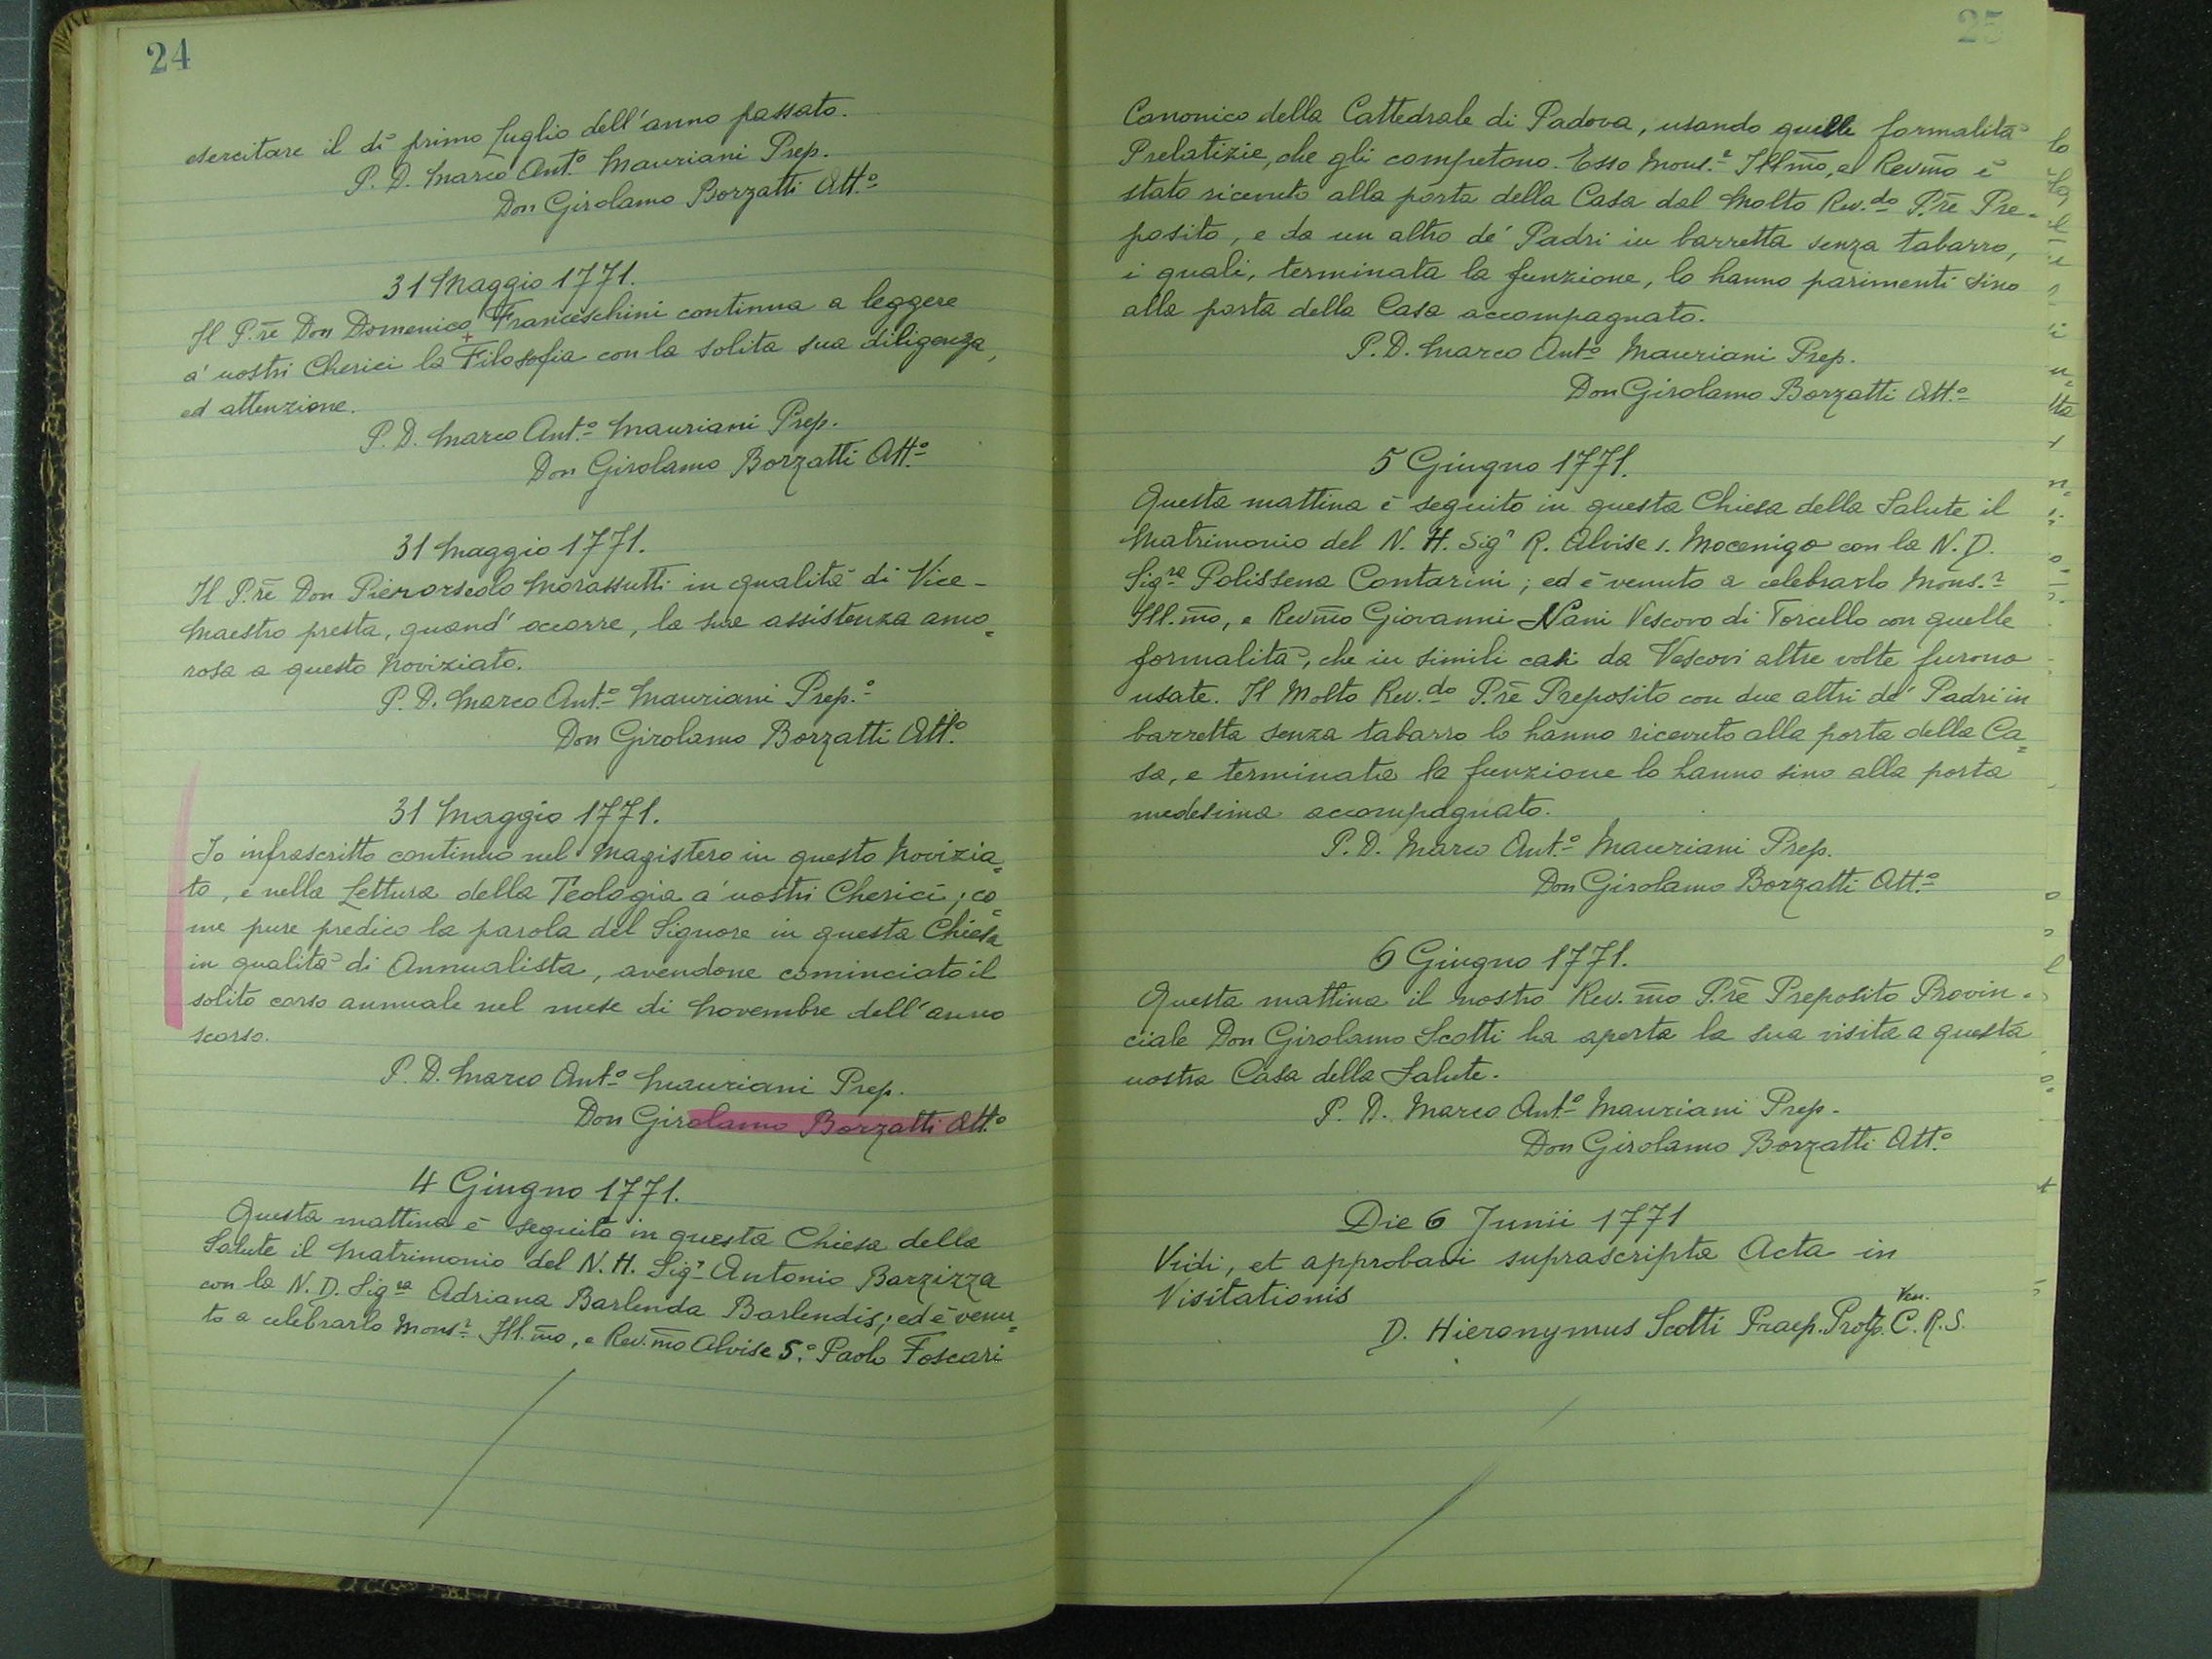 24
esercitare il dì primo Luglio dell'anno passato.
P. D. Marco Ant.º Mauriani Prep.
Don Girolamo Borzatti Att.º
31 Maggio 1771.
Il P.rē Don Domenico Franceschini continua a leggere
a' nostri Cherici la Filosofia con la solita sua diligenza,
ed attenzione.
P. D. Marco Ant.º Mauriani Prep.
Don Girolamo Borzatti Att.º
31 Maggio 1771.
Il P.rē Don Pierorseolo Morassutti in qualità di Vice-
Maestro presta, quand' occorre, la sua assistenza amo=
rosa a questo Noviziato.
P. D. Marco Ant.º Mauriani Prep.º
Don Girolamo Borzatti Att.º
31 Maggio 1771.
Io infrascritto continuo nel Magistero in questo Novizia=
to, e nella Lettura della Teologia a' nostri Cherici; co=
me pure predico la parola del Signore in questa Chiesa
in qualità di Annualista, avendone cominciato il
solito corso annuale nel mese di Novembre dell'anno
scorso.
P. D. Marco Ant.º Mauriani Prep.
Don Girolamo Borzatti Att.º
4 Giugno 1771.
Questa mattina è seguito in questa Chiesa della
Salute il Matrimonio del N. H. Sig.r Antonio Barzizza
con la N. D. Sig.ra Adriana Barlenda Barlendis; ed è venu=
to a celebrarlo Mons.r Ill.m̄o, e Rev.m̄o Alvise 5.º Paolo Foscari
25
Canonico della Cattedrale di Padova, usando quelle formalità
Prelatizie, che gli competono. Esso Mons.r Illm̄o, e Revm̄o è
stato ricevuto alla porta della Casa dal Molto Rev.do P.rē Pre-
posito, e da un altro de' Padri in barretta senza tabarro,
i quali, terminata la funzione, lo hanno parimenti sino
alla porta della Casa accompagnato.
P. D. Marco Ant.º Mauriani Prep.
Don Girolamo Borzatti Att.º
5 Giugno 1771.
Questa mattina è seguito in questa Chiesa della Salute il
Matrimonio del N. H. Sig.r R. Alvise 1. Mocenigo con la N. D.
Sig.ra Polissena Contarini; ed è venuto a celebrarlo Mons.r
Ill.m̄o, e Revm̄o Giovanni Nani Vescovo di Torcello con quelle
formalità, che in simili casi da Vescovi altre volte furono
usate. Il Molto Rev.do P.rē Preposito con due altri de' Padri in
barretta senza tabarro lo hanno ricevuto alla porta della Ca=
sa, e terminata la funzione lo hanno sino alla porta
medesima accompagnato.
P. D. Marco Ant.º Mauriani Prep.
Don Girolamo Borzatti Att.º
6 Giugno 1771.
Questa mattina il nostro Rev.m̄o P.rē Preposito Provin-
ciale Don Girolamo Scotti ha aperta la sua visita a questa
nostra Casa della Salute.
P. D. Marco Ant.º Mauriani Prep.
Don Girolamo Borzatti Att.º
Die 6 Junii 1771
Vidi, et approbavi suprascripta Acta in
Visitationis
Ven.
D. Hieronymus Scotti Praep. C. R. S.